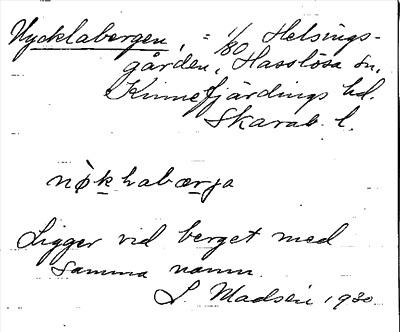 Nycklabergen, = 1/80 Helsings-
gården, Hasslösa sn,
Kinnefjärdings hd.
Skarab. l.
nøk labærja
Ligger vid berget med
samma namn.
L. Madsén 1930